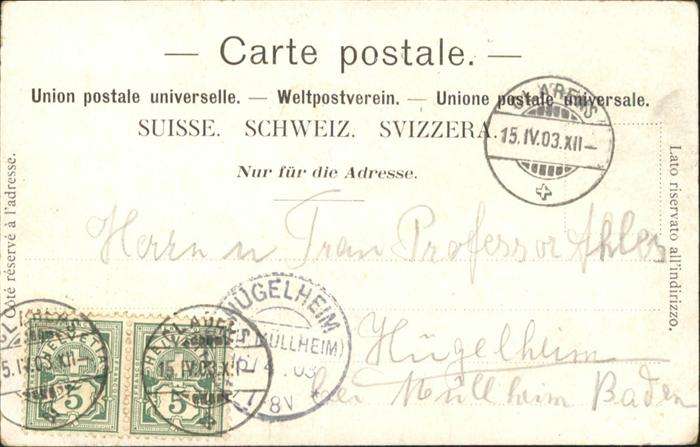 — Carte postale. —
Union postale universelle. — Weltpostverein. — Unione postale universale.
SUISSE. SCHWEIZ. SVIZZERA.
Nur für die Adresse.
CLARENS
15.IV.03.XII—
Côté réservé à l'adresse.
Lato riservato all'indirizzo.
Herrn u Frau Professor Ahles
Hügelheim
bei Müllheim Baden
HÜGELHEIM
MÜLLHEIM)
03
8V
HELVETIA
5
HELVETIA
5
15.IV.03.XII
15.IV.03.XII